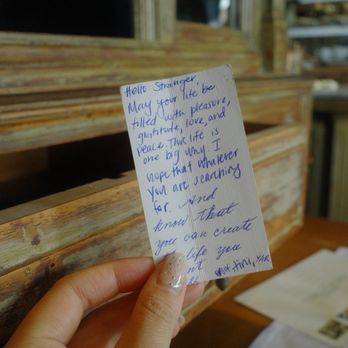 Hello Stranger
May your life be
filled with pleasure,
gratitude, love, and
peace. This life is
one big why. I
hope that whatever
you are searching
for. And
know that
you can create
life you